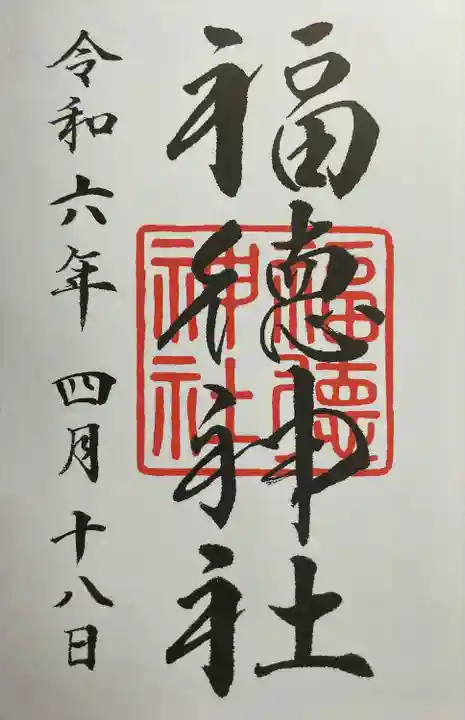 福徳神社
福徳神社
令和六年四月十八日